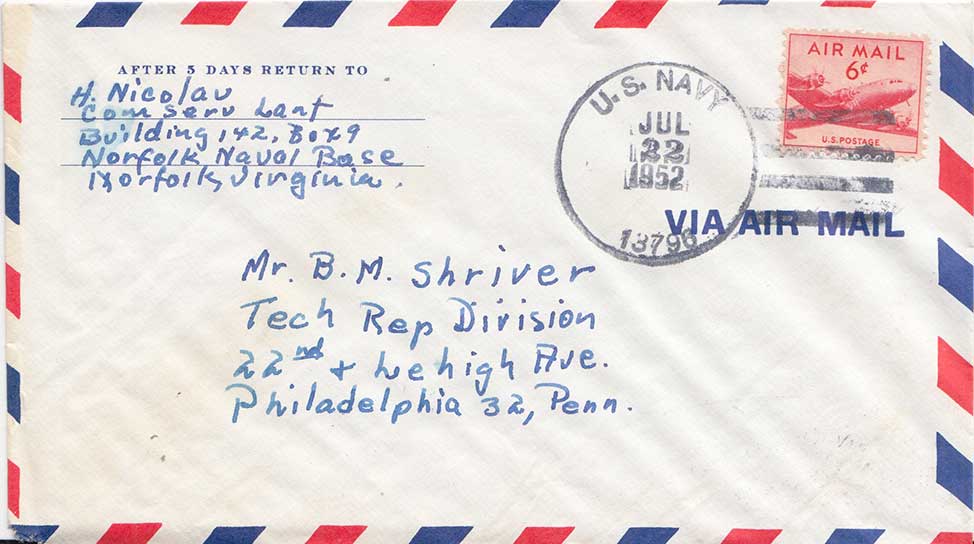 AFTER 5 DAYS RETURN TO
H. Nicolav
Com Serv Lant
Building 142, Box 9
Norfolk Naval Base
Norfolk, Virginia.
U.S. NAVY
JUL
22
1952
13796
AIR MAIL
6¢
U.S. POSTAGE
VIA AIR MAIL
Mr. B. M. Shriver
Tech Rep Division
22nd + Lehigh Ave.
Philadelphia 32, Penn.